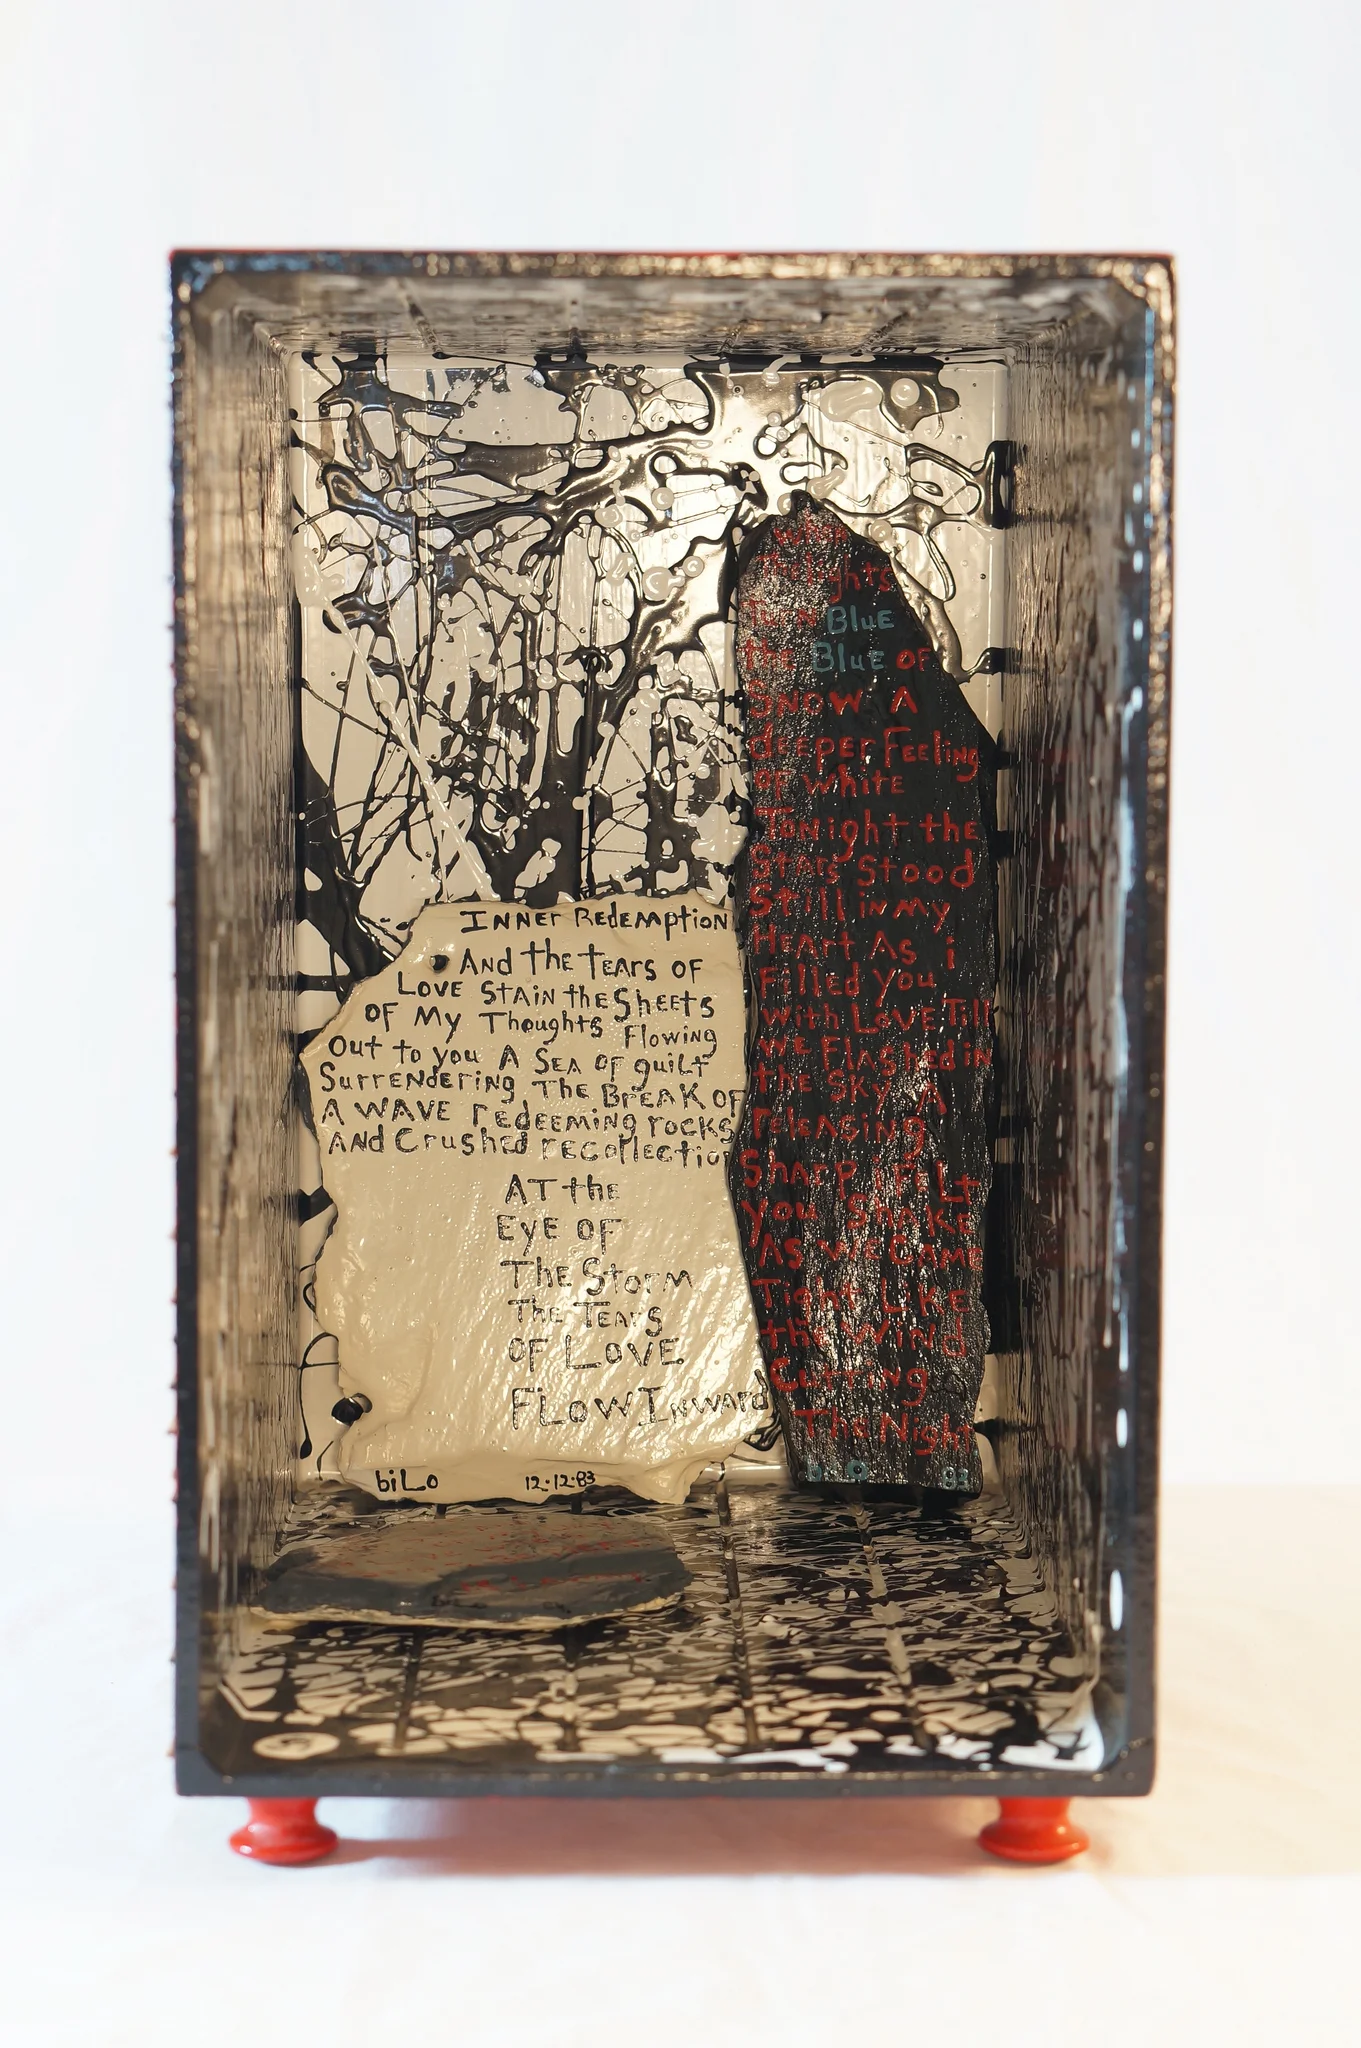 INNEr Redemption
ANd the tEArs OF
LOVE StAiN the Sheets
OF My Thoughts Flowing
Out to you A SEA OF guilt
SurrENdEring The BreAK OF
A WAVE rEdEEMing rocks
ANd Crushed rEcollection
AT the
EyE OF
The StorM
The TEArs
OF LOVE
FLOW INWArd
biLo 12.12.83
When
The Lights
TurN BluE
the BluE OF
SNOW A
dEEpEr FEEling
OF white
TONight the
StArs Stood
Still iN My
HEArt AS i
Filled you
With LOVE Till
WE FlAshed iN
the Sky A
rElEAsing
ShArp i FELt
you ShAKE
AS WE CAME
Tight LiKE
the WiNd
Cutting
The Night
83